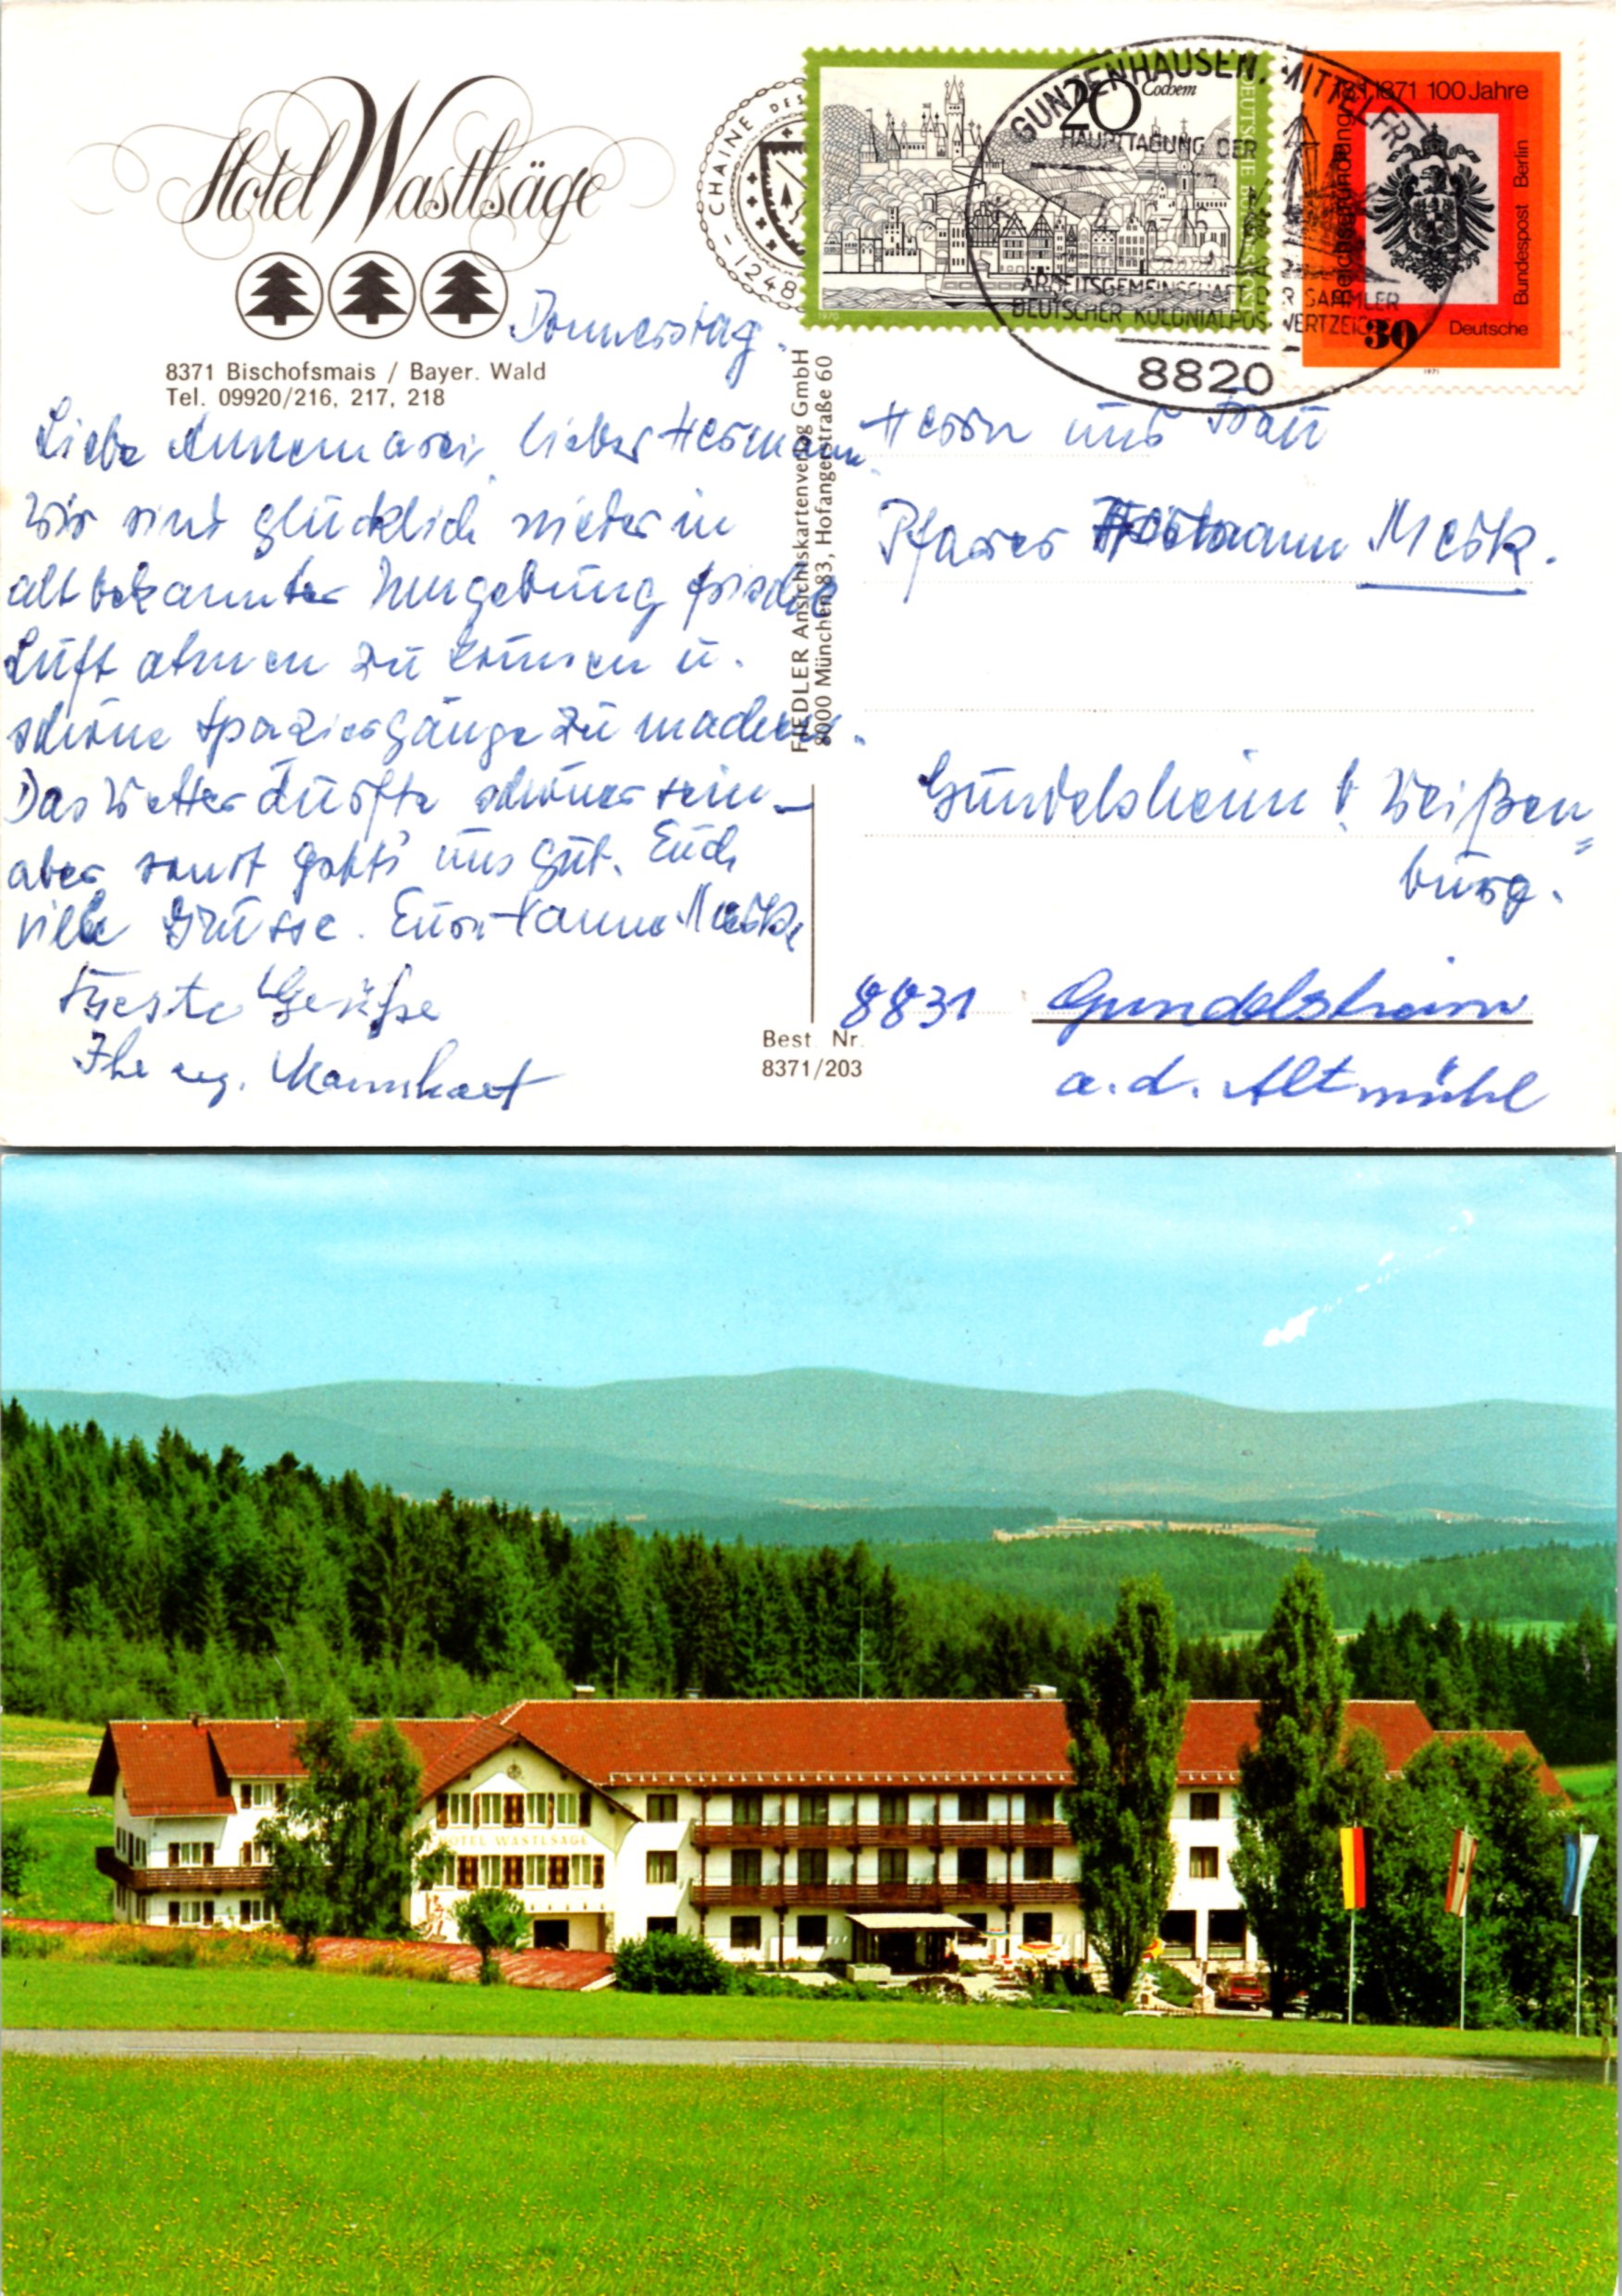 Hotel Wastlsäge
8371 Bischofsmais / Bayer. Wald
Tel. 09920/216, 217, 218
CHAINE DES
-1248
20
Cochem
DEUTSCHE BUNDESPOST
1970
18.1.1871 100 Jahre
Reichsgründung
30
Deutsche
Bundespost Berlin
1971
GUNZENHAUSEN, MITTELFR
HAUPTTAGUNG DER
ARBEITSGEMEINSCHAFT DER SAMMLER
DEUTSCHER KOLONIALPOSTWERTZEICHEN
8820
Donnerstag.
Liebe Annemarei, lieber Hermann
Wir sind glücklich wieder in
altbekannter Umgebung frische
Luft atmen zu können u.
schöne Spaziergänge zu machen.
Das Wetter dürfte schöner sein –
aber sonst geht's uns gut. Euch
viele Grüsse. Eure Hanna Merk
Beste Grüße
Ihre
FIEDLER Ansichtskartenverlag GmbH
8000 München 83, Hofangerstraße 60
Best. Nr.
8371/203
Herrn und Frau
Pfarrer Hermann Merk.
Gundelsheim b. Weißen=
burg.
8831 Gundelsheim
a.d. Altmühl
HOTEL WASTLSÄGE